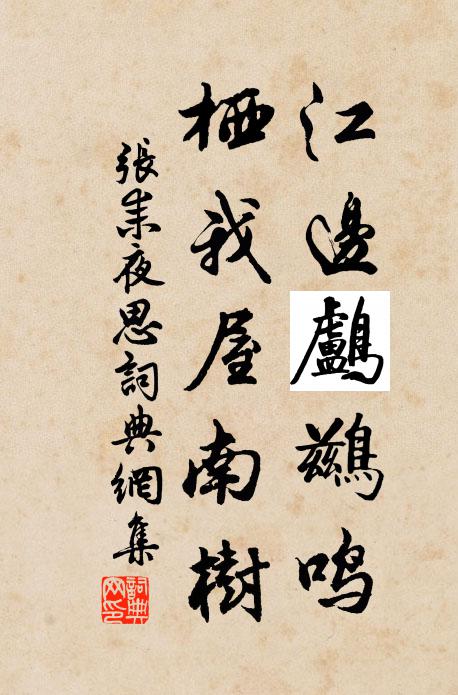 江邊鸕鷀鸣
栖我屋南樹
張耒夜思詞典網集
詞典網印